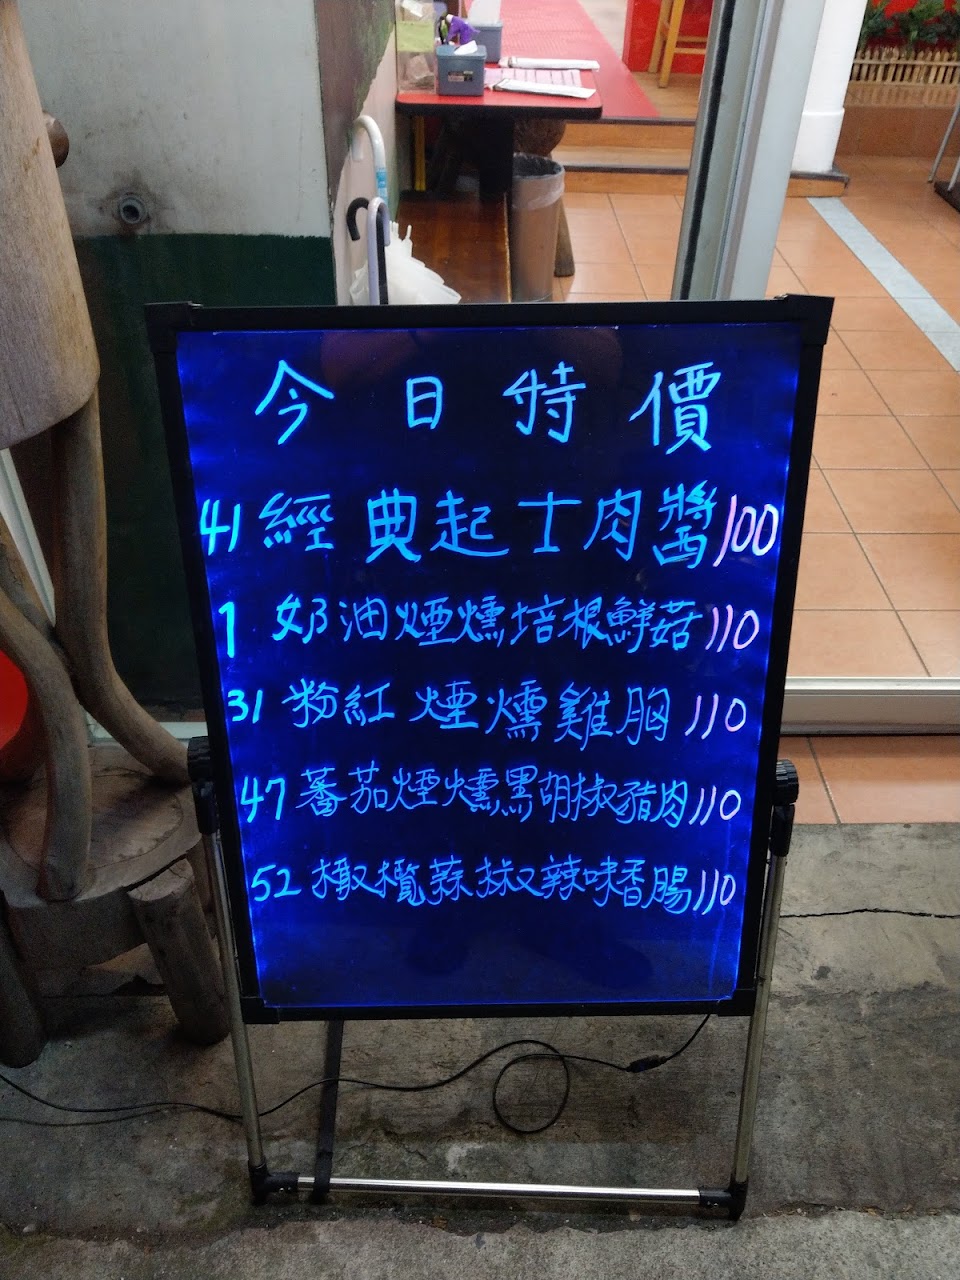 今日特價
41 經典起士肉醬 100
1 奶油煙燻培根鮮菇 110
31 粉紅煙燻雞胸 110
47 蕃茄煙燻黑胡椒豬肉 110
52 橄欖蒜椒辣味香腸 110